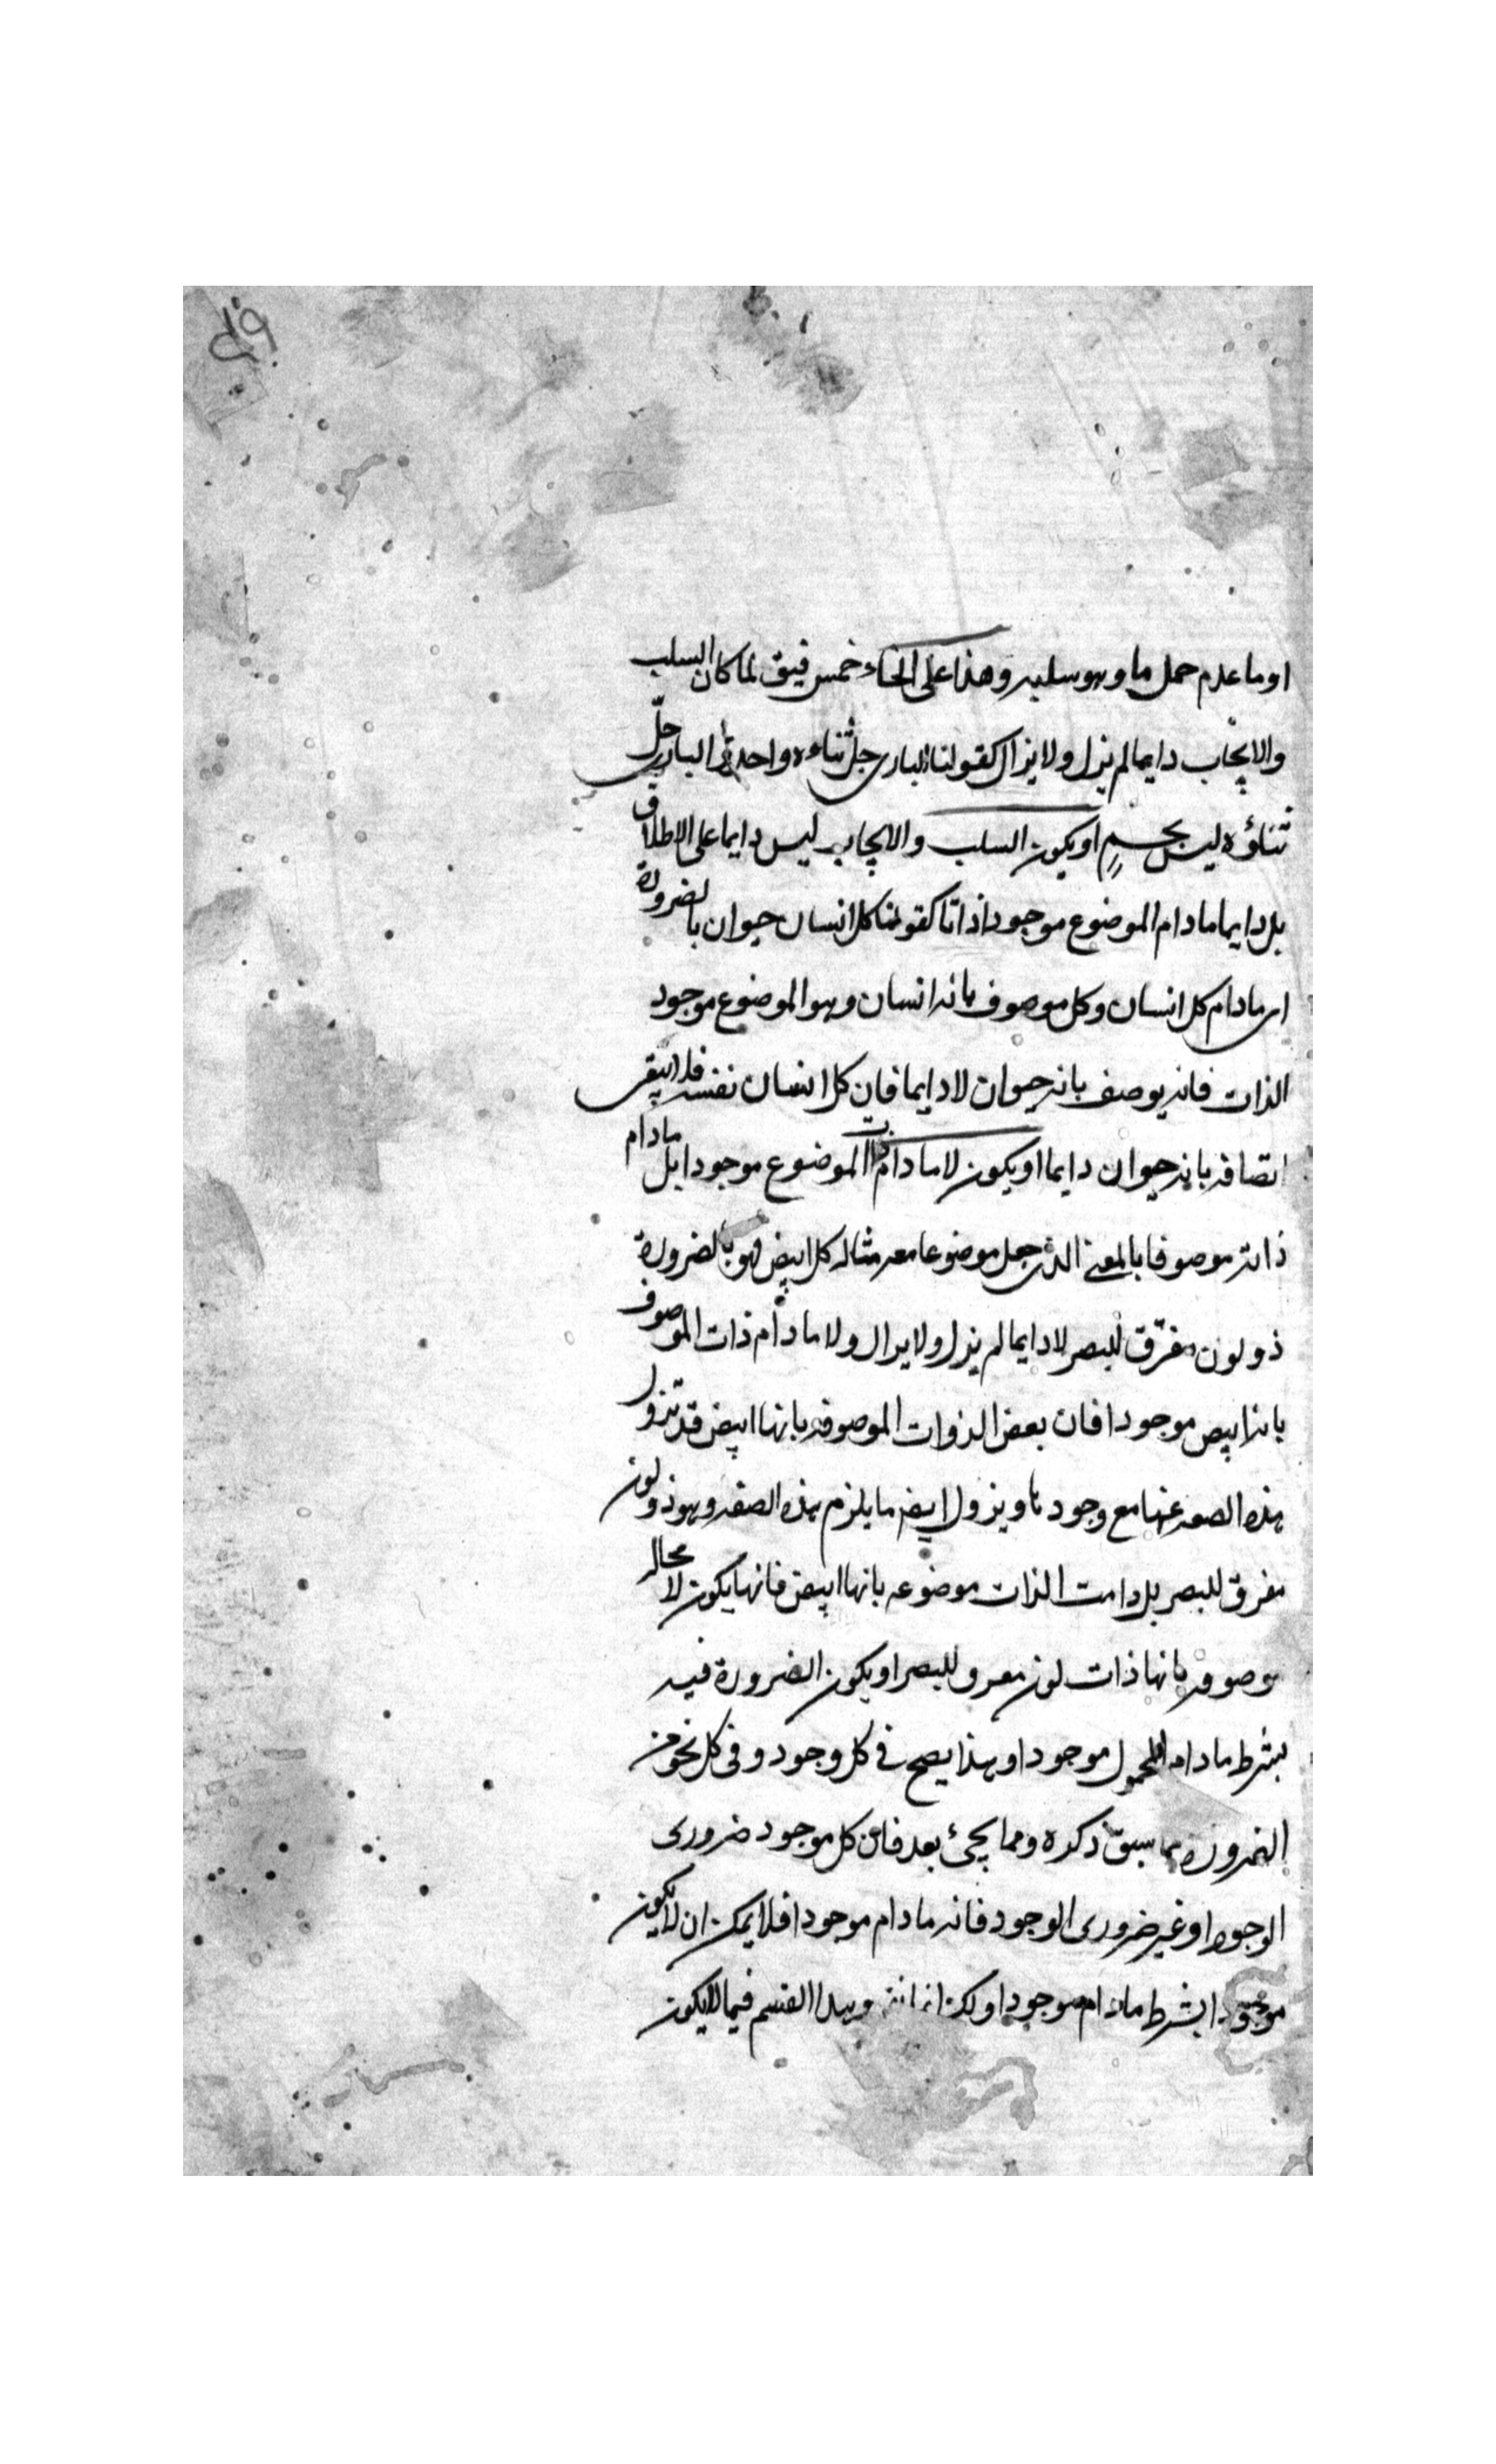 او ما عدم حمل ما وهو سلبه وهذا على انحاء خمس فيق لما كان السلب
والايجاب دايما لم يزل ولا يزال كقولنا البارى جل ثناءه واحد البارى جلّ
ثناؤه ليس بجسم او يكون السلب والايجاب ليس دايما على الاطلاق
بل دايما ما دام الموضوع موجودا ذاتا كقولنا كل انسان حيوان بالضرورة
اى ما دام كل انسان وكل موصوف بانه انسان وهو الموضوع موجود
الذات فانه يوصف بانه حيوان لا دايما فان كل انسان نفسه فلا يبقى
اتصافه بانه حيوان دايما او يكون لا ما دام الموضوع موجودا بل ما دام
ذاته موصوفا بالمعنى الذى جعل موضوعا معه مثاله كل ابيض فهو بالضرورة
ذو لون مفرّق للبصر لا دايما لم يزل ولا يزال ولا ما دام ذات الموصوف
بانه ابيض موجودا فان بعض الذوات الموصوفه بانها ابيض قد تزول
هذه الصفه عنها مع وجودها ويزول ايضا ما يلزم هذه الصفه وهو ذو لون
مفرق للبصر بل دامت الذات موضوعه بانها ابيض فانها يكون لا محاله
موصوفه بانها ذات لون مفرق للبصر او يكون الضرورة فيه
بشرط ما دام المحمول موجودا وهذا يصح فى كل وجود وفى كل نحو من
الضرورة مما سبق ذكره ومما يجئ بعد فان كل موجود ضرورى
الوجود او غير ضرورى الوجود فانه ما دام موجودا فلا يمكن ان لا يكون
موجودا بشرط ما دام موجودا وهذا القسم فيما لا يكون